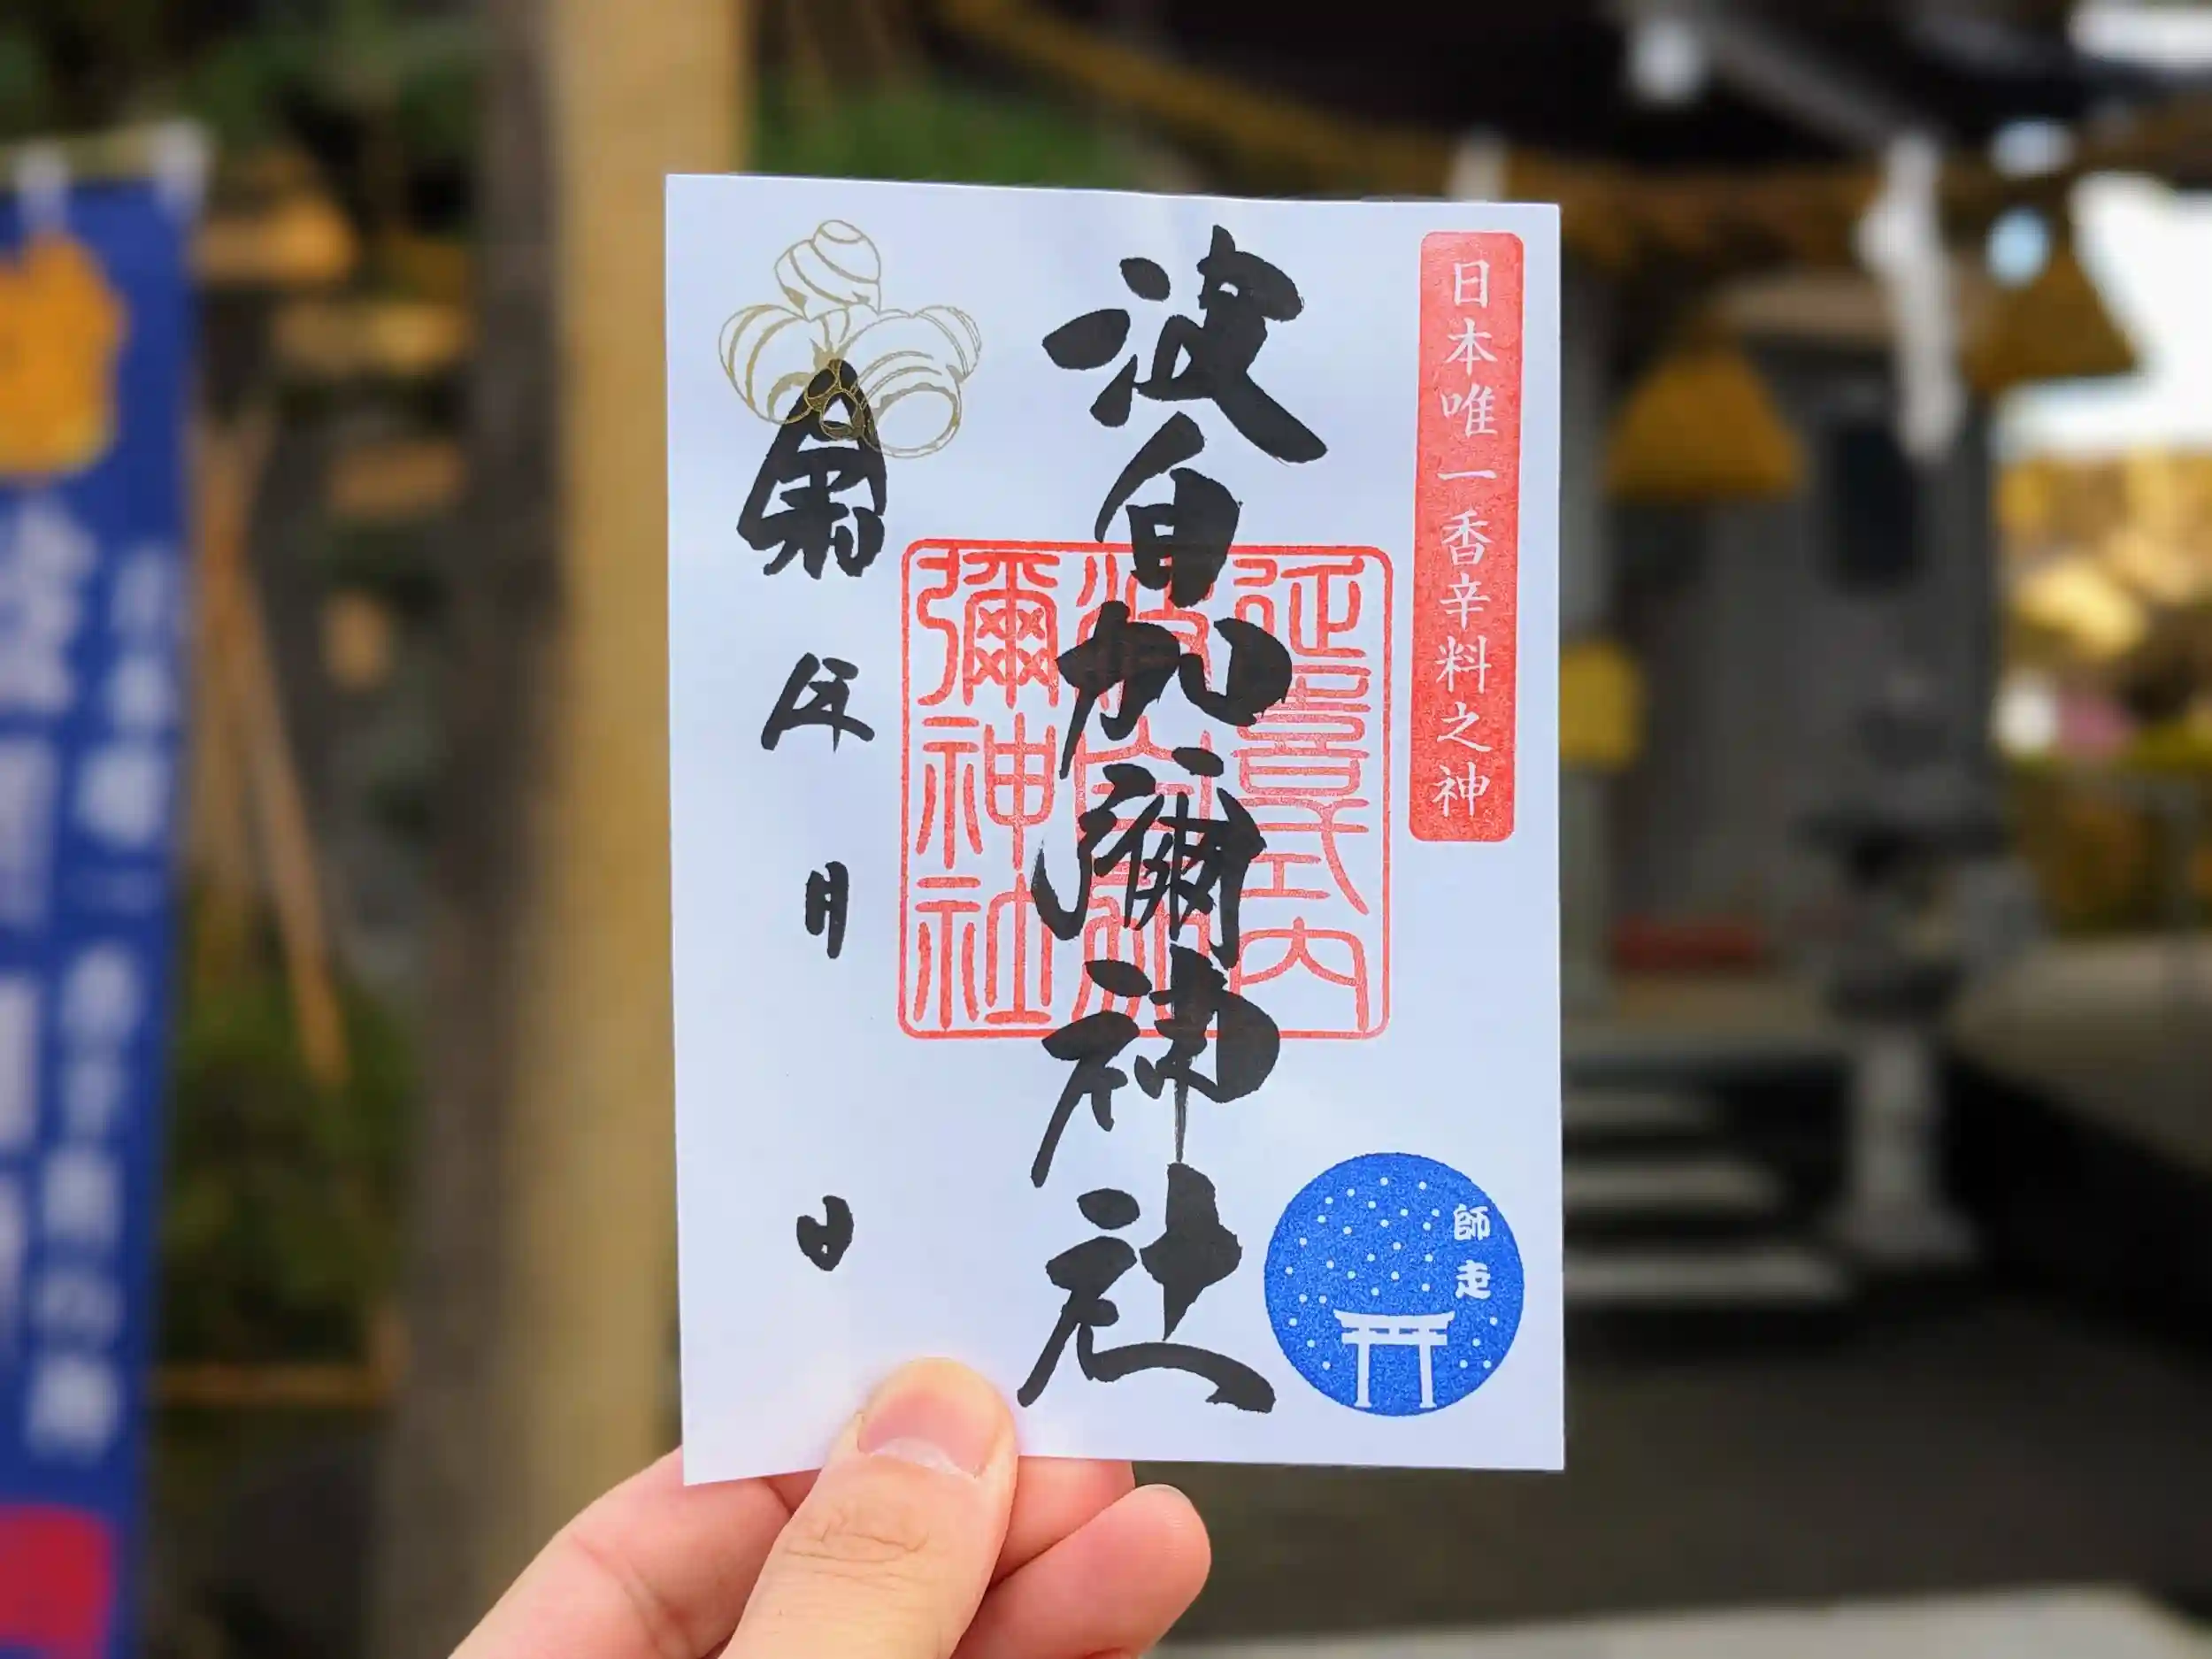 日本唯一香辛料之神
波自加彌神社
延喜式内
波自加
彌神社
年 月 日
師走